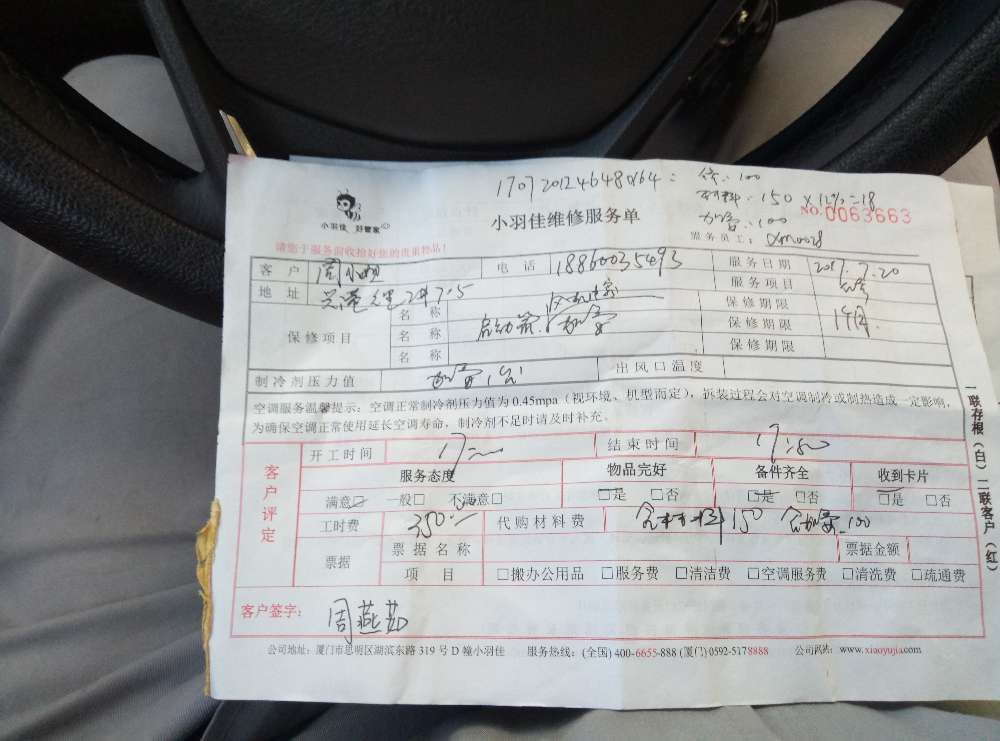 17072012464864:
100
材料:150 × 12%=18
加雾:100
小羽佳 好管家
小羽佳维修服务单
NO.0063663
服务员工:
请您于服务前收拾好您的贵重物品!
客户 周 电话 18860035493 服务日期 2017.7.20
地址 服务项目
保修项目 名称 保修期限
名称 启动器 保修期限 1个月
名称 保修期限
制冷剂压力值 出风口温度
空调服务温馨提示:空调正常制冷剂压力值为0.45mpa(视环境、机型而定),拆装过程会对空调制冷或制热造成一定影响,
为确保空调正常使用延长空调寿命,制冷剂不足时请及时补充。
客户评定
开工时间 17: 结束时间 17:
服务态度 物品完好 备件齐全 收到卡片
满意☑ 一般□ 不满意□ □是 □否 □是 □否 □是 □否
工时费 350 代购材料费 含材料150 含加雾100
票据 票据名称 票据金额
项目 □搬办公用品 □服务费 □清洁费 □空调服务费 □清洗费 □疏通费
客户签字: 周燕茹
一联存根(白) 二联客户(红)
公司地址:厦门市思明区湖滨东路319号D幢小羽佳 服务热线:(全国)400-6655-888 (厦门)0592-5178888 公司网站:www.xiaoyujia.com